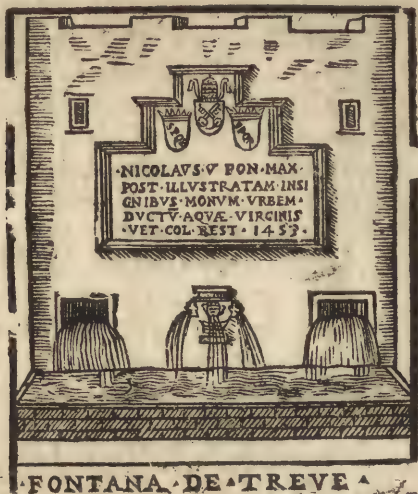 SPQR
SPQR
·NICOLAVS·V PON·MAX·
POST·ILLVSTRATAM·INSI
GNIBVS·MONVM·VRBEM·
DVCTṼ·AQVÆ·VIRGINIS
·VET·COL·REST·1453·
·FONTANA·DE·TREVE·